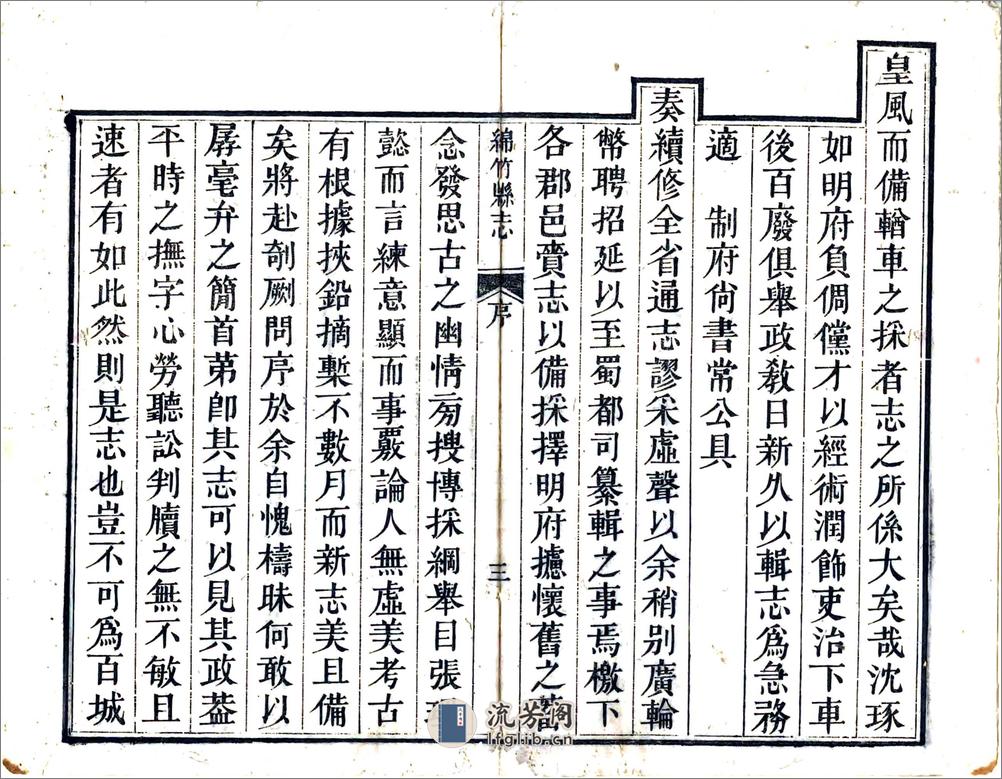 皇風而備輶車之採者志之所係大矣哉沈琢
如明府負倜儻才以經術潤飾吏治下車
後百廢俱舉政敎日新久以輯志爲急務
適　制府尙書常公具
奏續修全省通志謬采虛聲以余稍别廣輪
幣聘招延以至蜀都司纂輯之事焉檄下
各郡邑賷志以備採擇明府攄懷舊之
綿竹縣志
序
三
念發思古之幽情旁搜博採綱舉目張
懿而言練意顯而事覈論人無虛美考古
有根據挾鉛摘槧不數月而新志美且備
矣將赴剞劂問序於余自愧檮昧何敢以
孱毫弁之簡首苐卽其志可以見其政葢
平時之撫字心勞聽訟判牘之無不敏且
速者有如此然則是志也豈不可爲百城
流芳阁
lfglib.cn